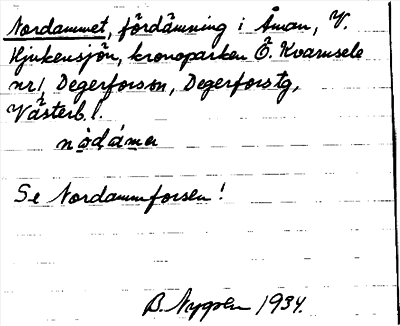 Nordammet, fördämning i Åman, V.
Hjukensjön, kronoparken Ö. Kvarnsele
nr 1, Degerforson, Degerforstg,
Västerb. l.
nòdámə
Se Nordammforsen!
B. Nygren 1934.